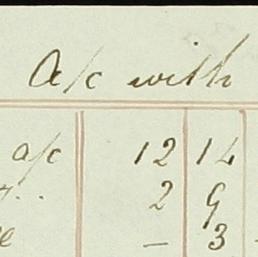 A/c with
a/c 12 14
2 9
— 3